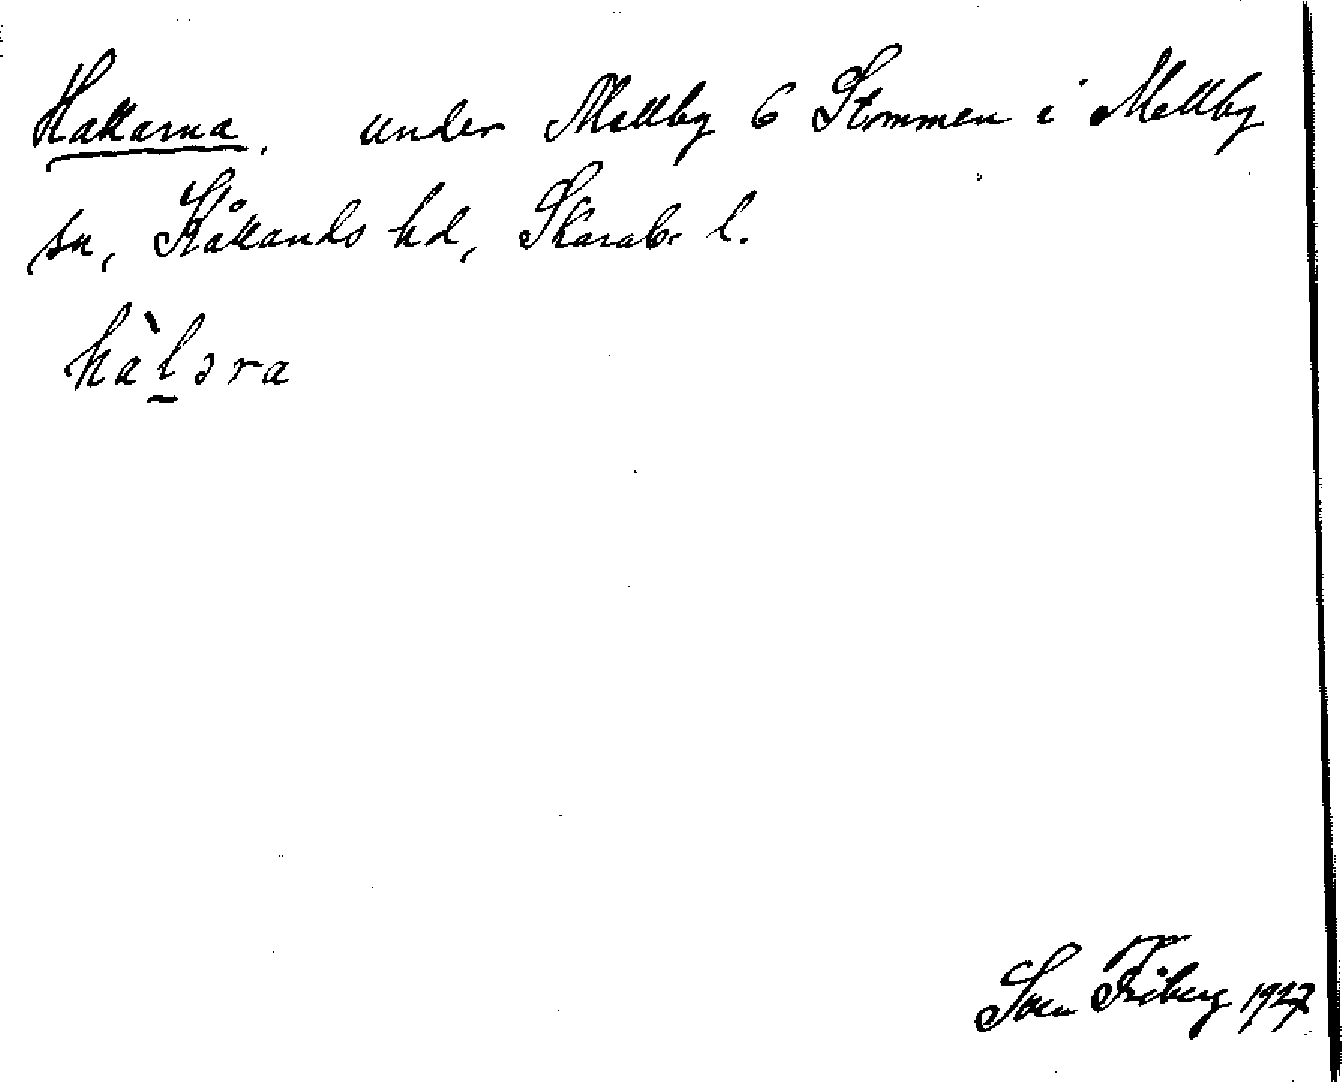 Hallarna, under Mellby 6 Stommen i Mellby
sn, Kållands hd, Skarab. l.
hàl̠əra
Sven Friberg 1927